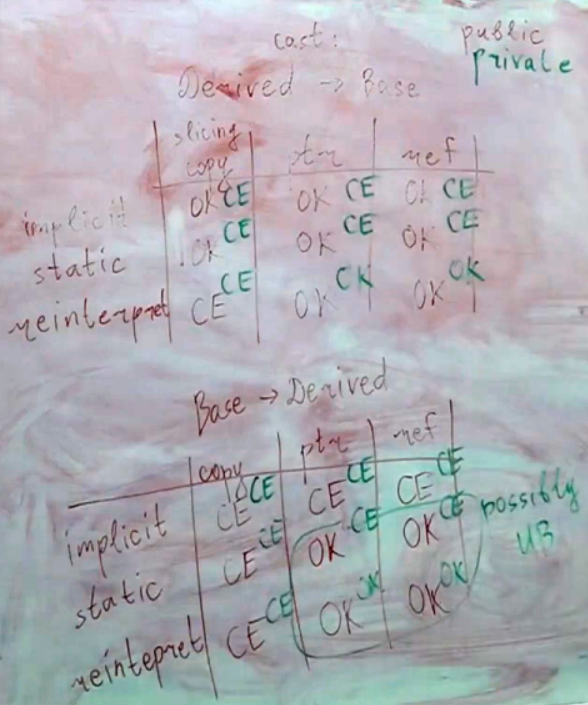 cast: public
private
Derived → Base
slicing
copy ptr ref
implicit OK CE OK CE OK CE
static OK CE OK CE OK CE
reinterpret CE CE OK OK OK OK
Base → Derived
copy ptr ref
implicit CE CE CE CE CE CE
static CE CE OK CE OK CE possibly
UB
reintepret CE CE OK OK OK OK